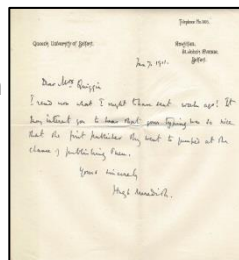 Telephone No. 501.
Queen's University of Belfast.
St. John's Avenue
Belfast.
Dear Mrs Quiggin
I send now what I ought to have sent weeks ago! It
may interest you to hear that your typing was so nice
that the first publisher they went to jumped at the
chance of publishing them.
Yours sincerely
Hugh Meredith.